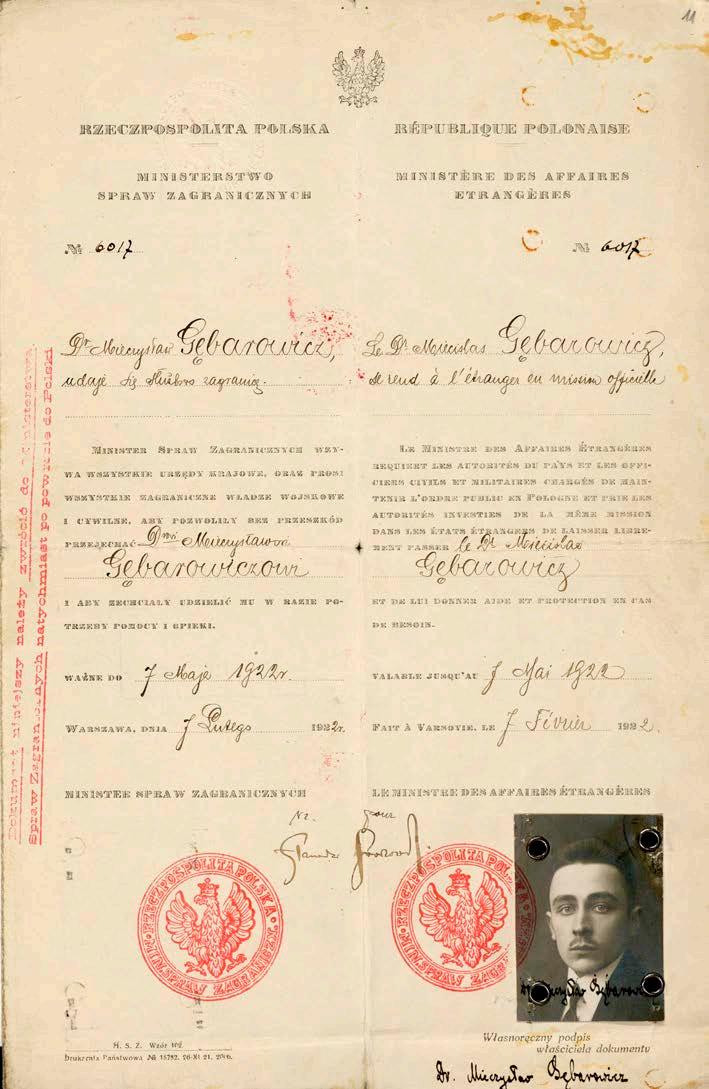 11
RZECZPOSPOLITA POLSKA
MINISTERSTWO
SPRAW ZAGRANICZNYCH
№ 6017
Dr Mieczysław Gębarowicz,
udaje się służbowo zagranicę.
MINISTER SPRAW ZAGRANICZNYCH WZY-
WA WSZYSTKIE URZĘDY KRAJOWE, ORAZ PROSI
WSZYSTKIE ZAGRANICZNE WŁADZE WOJSKOWE
I CYWILNE, ABY POZWOLIŁY BEZ PRZESZKÓD
PRZEJECHAĆ Drowi Mieczysławowi
Gębarowiczowi
I ABY ZECHCIAŁY UDZIELIĆ MU W RAZIE PO-
TRZEBY POMOCY I OPIEKI.
WAŻNE DO 7 Maja 1922r.
WARSZAWA, DNIA 7 Lutego 1922r.
MINISTER SPRAW ZAGRANICZNYCH
RÉPUBLIQUE POLONAISE
MINISTÈRE DES AFFAIRES
ETRANGÈRES
№ 6017
Le Dr Miecislas Gębarowicz,
se rend à l'étranger en mission officielle
LE MINISTRE DES AFFAIRES ÉTRANGÈRES
REQUIERT LES AUTORITÉS DU PAYS ET LES OFFI-
CIERS CIVILS ET MILITAIRES CHARGÉS DE MAIN-
TENIR L'ORDRE PUBLIC EN POLOGNE ET PRIE LES
AUTORITÉS INVESTIES DE LA MÊME MISSION
DANS LES ÉTATS ÉTRANGERS DE LAISSER LIBRE-
MENT PASSER le Dr Miecislas
Gębarowicz
ET DE LUI DONNER AIDE ET PROTECTION EN CAS
DE BESOIN.
VALABLE JUSQU'AU 7 Mai 1922
FAIT À VARSOVIE, LE 7 Février 1922.
LE MINISTRE DES AFFAIRES ÉTRANGÈRES
Dokument niniejszy należy zwrócić do Ministerstwa
Spraw Zagranicznych natychmiast po powrocie do Polski
Nz. pour
RZECZPOSPOLITA POLSKA
MIN. SPRAW ZAGRANICZ.
RZECZPOSPOLITA POLSKA
MIN. SPRAW ZAGR
Dr. Mieczysław Gębarowicz
M. S. Z. Wzór 102.
Drukarnia Państwowa № 15782. 26-XI 21.
Własnoręczny podpis
właściciela dokumentu
Dr. Mieczysław Gębarowicz